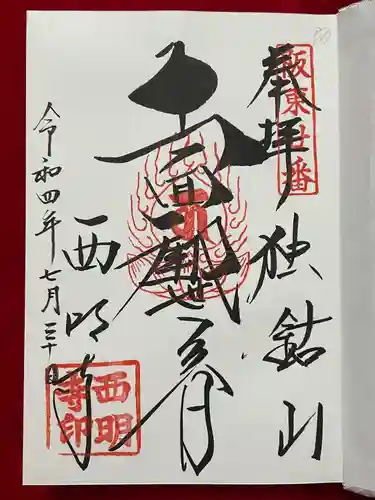 奉拝
阪東廿番
独鈷山
西明寺
令和四年七月三十日
西明
寺印